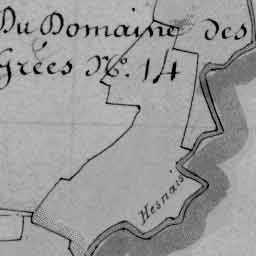 Du Domaine des
Grées N.º 14
Hesnais